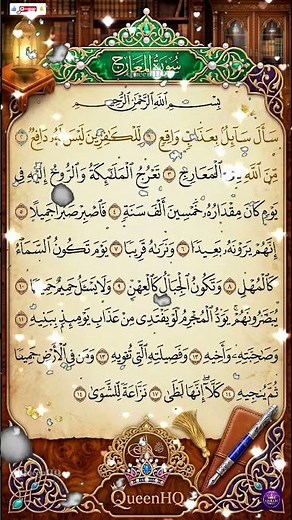 سُورَةُ الْمَعَارِجِ
بِسْمِ اللَّهِ الرَّحْمَٰنِ الرَّحِيمِ
سَأَلَ سَائِلٌ بِعَذَابٍ وَاقِعٍ ١ لِلْكَافِرِينَ لَيْسَ لَهُ دَافِعٌ ٢
مِنَ اللَّهِ ذِي الْمَعَارِجِ ٣ تَعْرُجُ الْمَلَائِكَةُ وَالرُّوحُ إِلَيْهِ فِي
يَوْمٍ كَانَ مِقْدَارُهُ خَمْسِينَ أَلْفَ سَنَةٍ ٤ فَاصْبِرْ صَبْرًا جَمِيلًا ٥
إِنَّهُمْ يَرَوْنَهُ بَعِيدًا ٦ وَنَرَاهُ قَرِيبًا ٧ يَوْمَ تَكُونُ السَّمَاءُ
كَالْمُهْلِ ٨ وَتَكُونُ الْجِبَالُ كَالْعِهْنِ ٩ وَلَا يَسْأَلُ حَمِيمٌ حَمِيمًا ١٠
يُبَصَّرُونَهُمْ يَوَدُّ الْمُجْرِمُ لَوْ يَفْتَدِي مِنْ عَذَابِ يَوْمِئِذٍ بِبَنِيهِ ١١
وَصَاحِبَتِهِ وَأَخِيهِ ١٢ وَفَصِيلَتِهِ الَّتِي تُؤْوِيهِ ١٣ وَمَنْ فِي الْأَرْضِ جَمِيعًا
ثُمَّ يُنْجِيهِ ١٤ كَلَّا إِنَّهَا لَظَىٰ ١٧ نَزَّاعَةً لِلشَّوَىٰ ١٤
QueenHQ